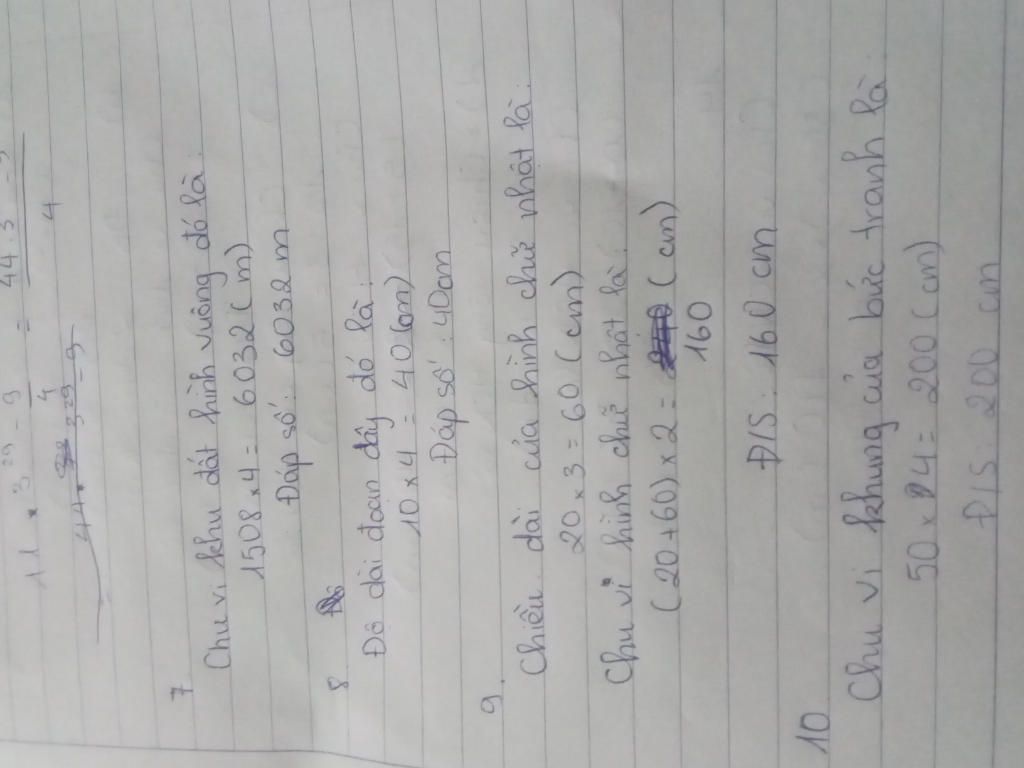 11 . 3²⁹ - 9 = 44 . 3
4 4
7
Chu vi khu đất hình vuông đó là:
1508 × 4 = 6032 (m)
Đáp số: 6032 m
8
Độ dài đoạn dây đó là:
10 × 4 = 40 (cm)
Đáp số: 40cm
9.
Chiều dài của hình chữ nhật là:
20 × 3 = 60 (cm)
Chu vi hình chữ nhật là:
(20 + 60) × 2 = (cm)
160
Đ/S: 160 cm
10
Chu vi khung của bức tranh là:
50 × 4 = 200 (cm)
Đ/S: 200 cm